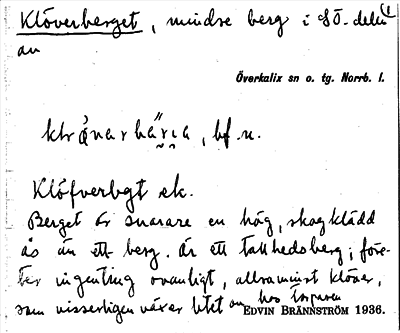 Klöverberget, mindre berg i SÖ. delen 1
av
Överkalix sn o. tg. Norrb. l.
bf. n.
Klöfverbgt ek.
Berget är snarare en hög, skogklädd
ås än ett berg. Är ett tallhedsberg; före-
ter ingenting ovanligt, allraminst klöver,
som visserligen växer litet om hos torparen
EDVIN BRÄNNSTRÖM 1936.